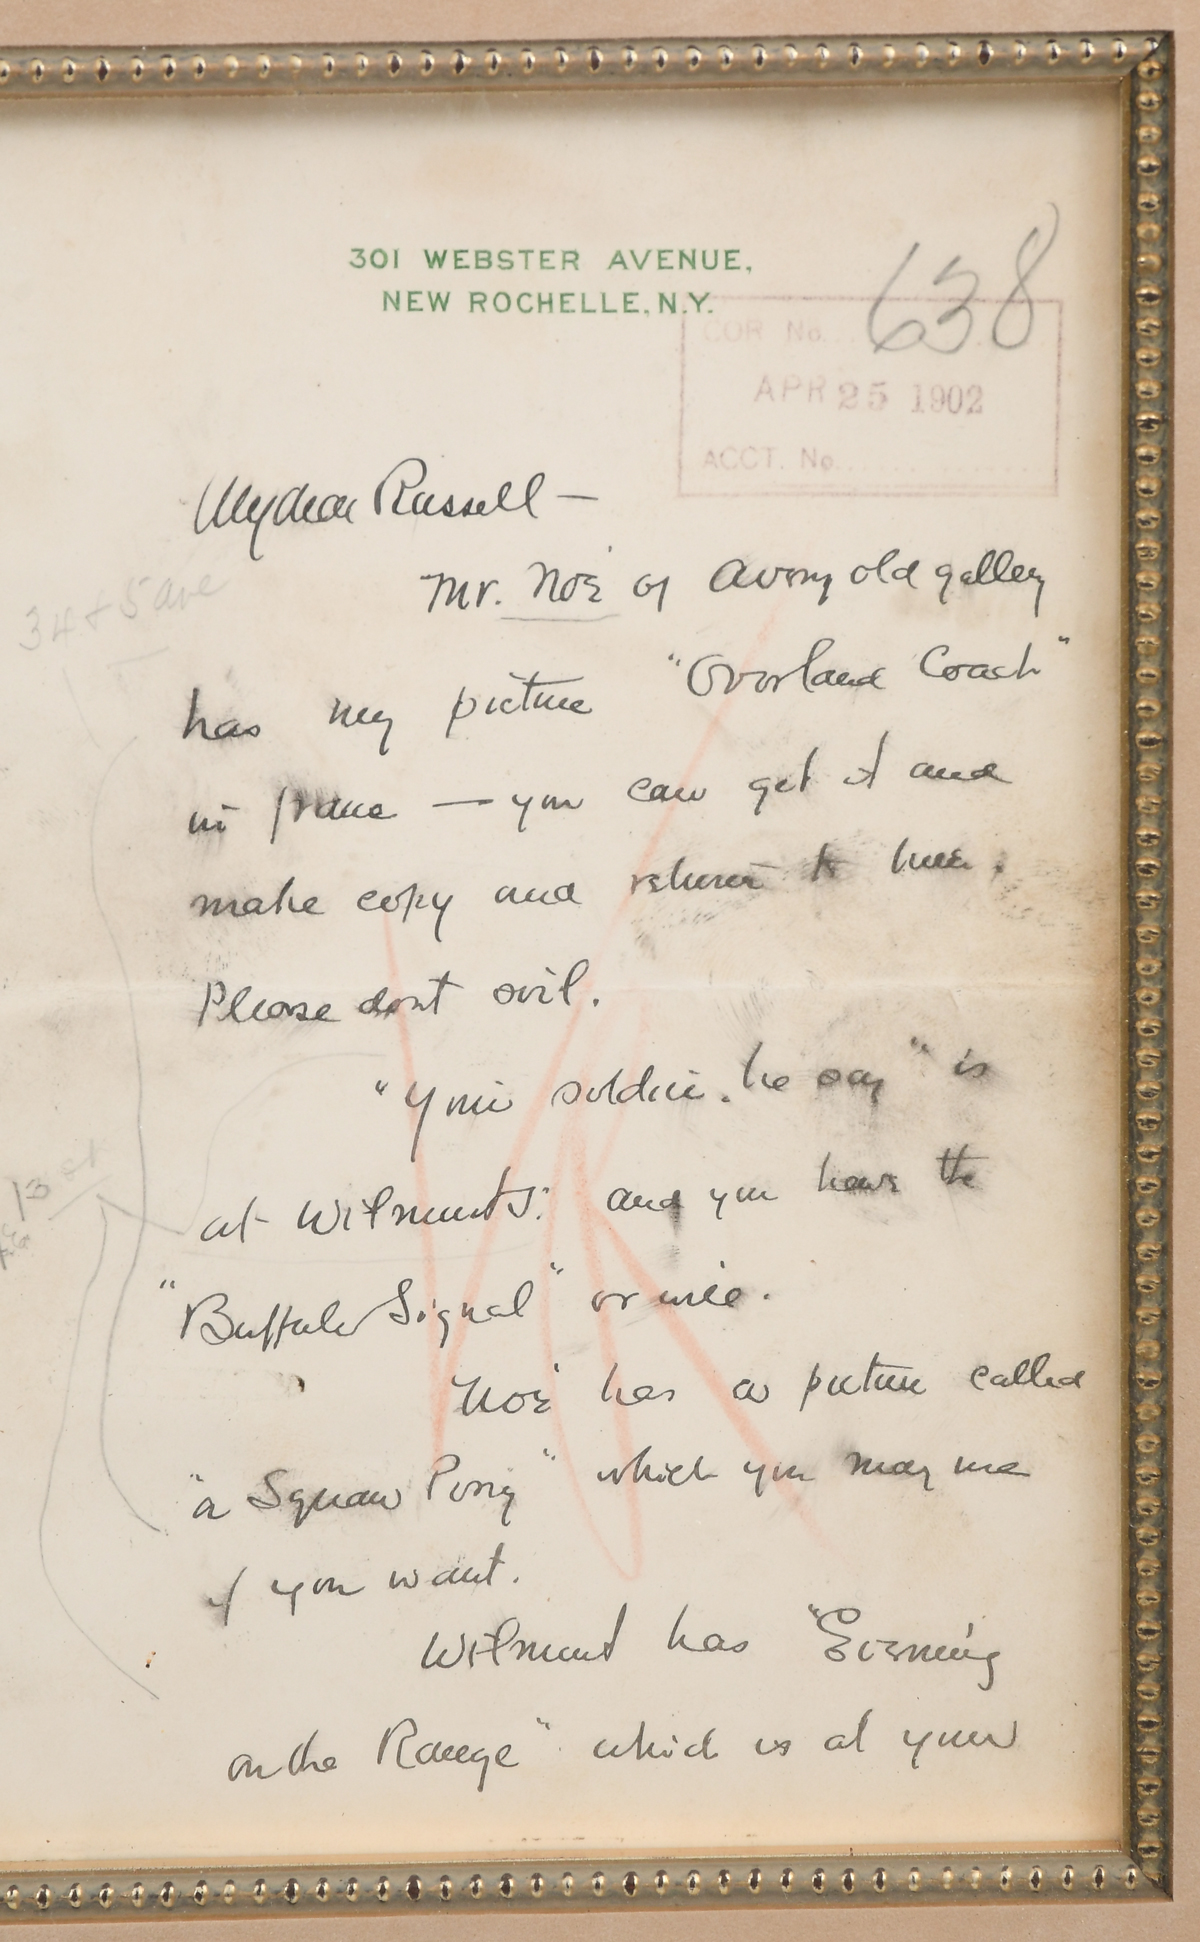 301 WEBSTER AVENUE,
NEW ROCHELLE, N.Y.
638
COR No.
APR 25 1902
ACCT. No.
My dear Russell —
Mr. Noé of Avery old gallery
34 + 5 ave
has my picture "Overland Coach"
in frame — you can get it and
make copy and return to him.
Please dont oil.
"Your soldier, he say" is
13 st
at Wilmurts: and you have the
"Buffalo Signal" or will.
Noé has a picture called
"a Squaw Pony" which you may use
if you want.
Wilmurt has "Evening
on the Range" which is at your